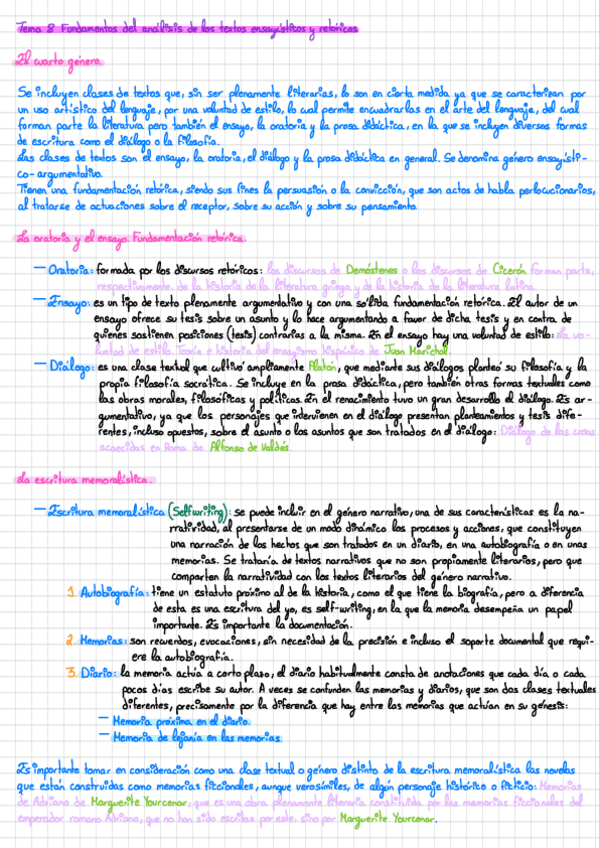 Tema 8 Fundamentos del análisis de los textos ensayísticos y retóricos
El cuarto género.
Se incluyen clases de textos que, sin ser plenamente literarias, lo son en cierta medida ya que se caracterizan por
un uso artístico del lenguaje, por una voluntad de estilo, lo cual permite encuadrarlas en el arte del lenguaje, del cual
forman parte la literatura pero también el ensayo, la oratoria y la prosa didáctica, en la que se incluyen diversas formas
de escritura como el diálogo o la filosofía.
Las clases de textos son el ensayo, la oratoria, el diálogo y la prosa didáctica en general. Se denomina género ensayísti-
co-argumentativo.
Tienen una fundamentación retórica, siendo sus fines la persuasión o la convicción, que son actos de habla perlocucionarios,
al tratarse de actuaciones sobre el receptor, sobre su acción y sobre su pensamiento.
La oratoria y el ensayo. Fundamentación retórica.
— Oratoria: formada por los discursos retóricos: los discursos de Demóstenes o los discursos de Cicerón forman parte,
respectivamente, de la historia de la literatura griega y de la historia de la literatura latina.
— Ensayo: es un tipo de texto plenamente argumentativo y con una sólida fundamentación retórica. El autor de un
ensayo ofrece su tesis sobre un asunto y lo hace argumentando a favor de dicha tesis y en contra de
quienes sostienen posiciones (tesis) contrarias a la misma. En el ensayo hay una voluntad de estilo: La vo-
luntad de estilo. Teoría e historia del ensayismo hispánico de Juan Marichal.
— Diálogo: es una clase textual que cultivó ampliamente Platón, que mediante sus diálogos planteó su filosofía y la
propia filosofía socrática. Se incluye en la prosa didáctica, pero también otras formas textuales como
las obras morales, filosóficas y políticas. En el renacimiento tuvo un gran desarrollo el diálogo. Es ar-
gumentativo, ya que los personajes que intervienen en el diálogo presentan planteamientos y tesis dife-
rentes, incluso opuestos, sobre el asunto o los asuntos que son tratados en el diálogo: Diálogo de las cosas
acaecidas en Roma de Alfonso de Valdés.
La escritura memoralística.
— Escritura memoralística (Selfwriting): se puede incluir en el género narrativo, una de sus características es la na-
rratividad, al presentarse de un modo dinámico los procesos y acciones, que constituyen
una narración de los hechos que son tratados en un diario, en una autobiografía o en unas
memorias. Se trataría de textos narrativos que no son propiamente literarios, pero que
comparten la narratividad con los textos literarios del género narrativo.
1. Autobiografía: tiene un estatuto próximo al de la historia, como el que tiene la biografía, pero a diferencia
de esta es una escritura del yo, es self-writing, en la que la memoria desempeña un papel
importante. Es importante la documentación.
2. Memorias: son recuerdos, evocaciones, sin necesidad de la precisión e incluso el soporte documental que requi-
ere la autobiografía.
3. Diario: la memoria actúa a corto plazo, el diario habitualmente consta de anotaciones que cada día o cada
pocos días escribe su autor. A veces se confunden las memorias y diarios, que son dos clases textuales
diferentes, precisamente por la diferencia que hay entre las memorias que actúan en su génesis:
— Memoria próxima en el diario.
— Memoria de lejanía en las memorias.
Es importante tomar en consideración como una clase textual o género distinto de la escritura memoralística las novelas
que están construidas como memorias ficcionales, aunque verosímiles, de algún personaje histórico o ficticio: Memorias
de Adriano de Marguerite Yourcenar, que es una obra plenamente literaria constituida por las memorias ficcionales del
emperador romano Adriano, que no han sido escritas por este, sino por Marguerite Yourcenar.